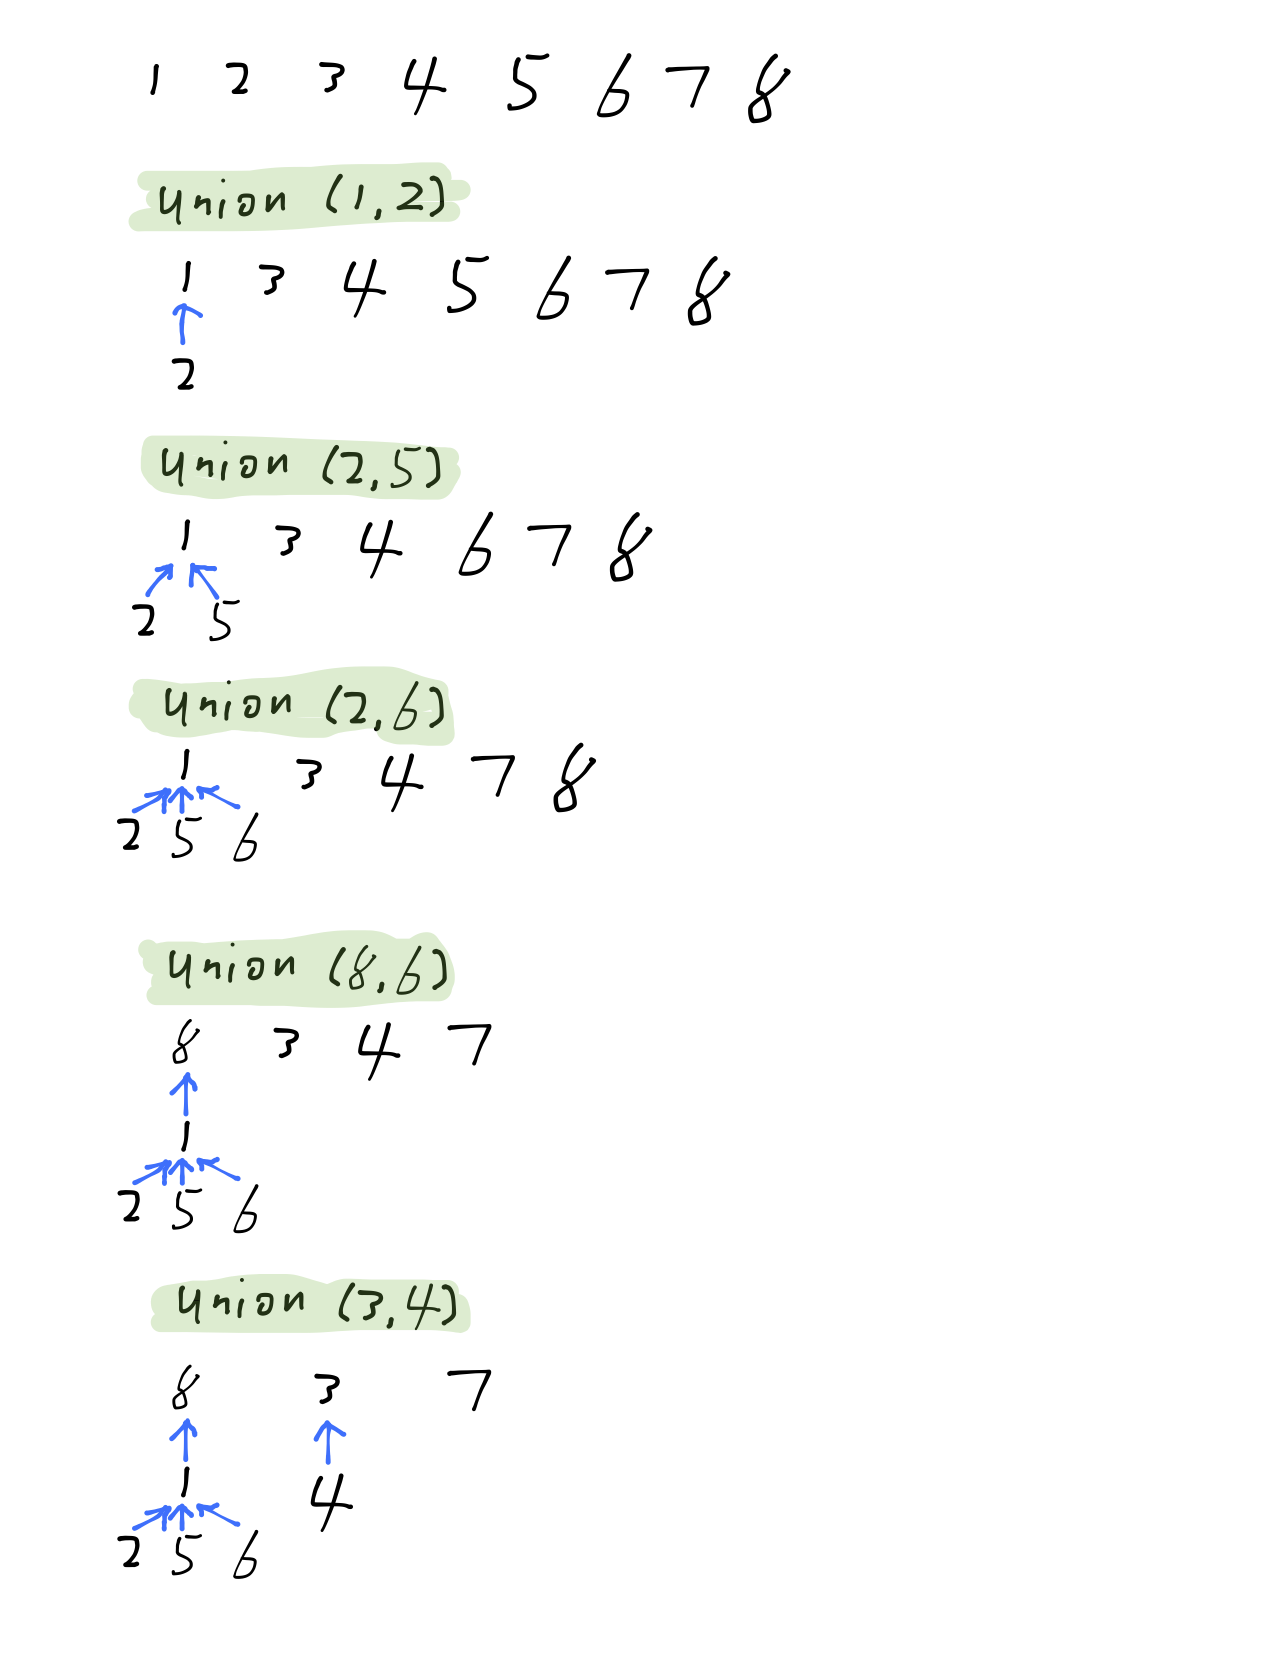 1 2 3 4 5 6 7 8
Union (1,2)
1 3 4 5 6 7 8
2
Union (2,5)
1 3 4 6 7 8
2 5
Union (2,6)
1 3 4 7 8
2 5 6
Union (8,6)
8 3 4 7
1
2 5 6
Union (3,4)
8 3 7
1 4
2 5 6